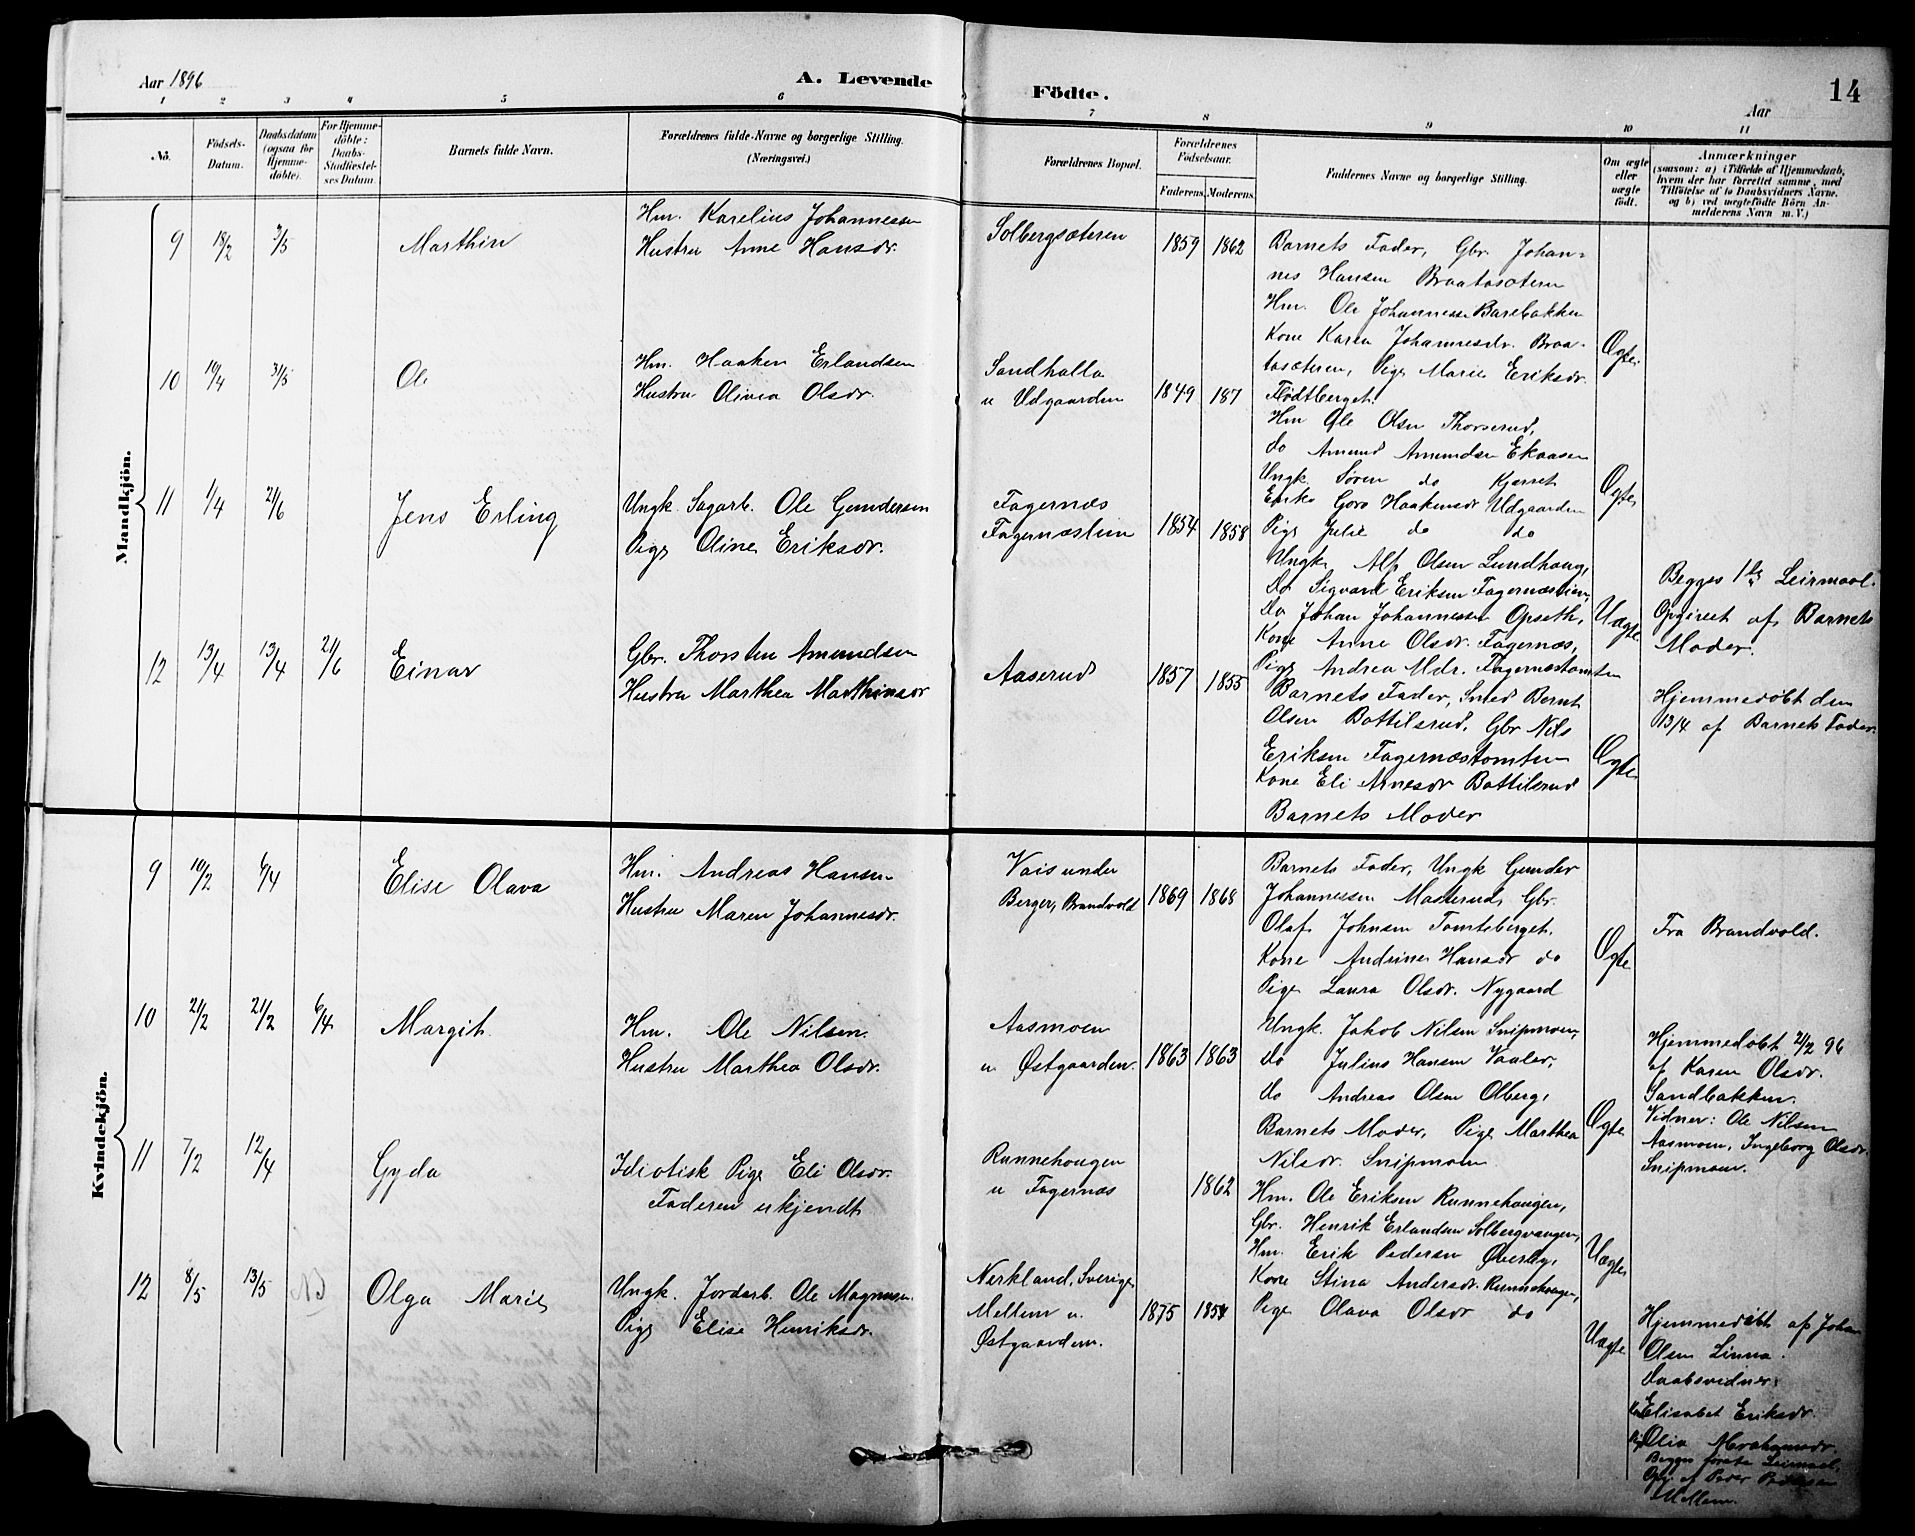 Aar 1896
A. Levende
Födte.
Aar
14
1 2 3 4 5 6 7 8 9 10 11
No.
Födsels-Datum.
Daabsdatum (ogsaa for Hjemme-döbte).
For Hjemme-döbte: Daabs-Stadfæstel-ses Datum.
Barnets fulde Navn.
Forældrenes fulde Navne og borgerlige Stilling. (Næringsvei.)
Forældrenes Bopæl.
Forældrenes Födselsaar.
Faderens. Moderens.
Faddernes Navne og borgerlige Stilling.
Om ægte eller uægte födt.
Anmærkninger
(saasom: a) i Tilfælde af Hjemmedaab, hvem der har forrettet samme, med Tilföielse af to Daabsvidners Navne. og b) ved uægtefödte Börn An-melderens Navn m. V.)
Mandkjön.
9 18/2 7/5 Marthin
Hm. Karelius Johannessen
Hustru Anne Hansdr.
Solbergsæteren
1859 1862
Barnets Fader, Gbr. Johan-
nes Hansen Braatasæteren
Hm. Ole Johannessen Barebakken
Kone Karen Johannesdr. Braa-
tasæteren, Pige Marie Eriksdr.
Flödtberget.
Ægte
10 19/4 31/5 Ole
Hm. Haaken Erlandsen
Hustru Olivia Olsdr.
Sandhalla
u Udgaarden
1849 187
Hm Ole Olsen Thorserud,
do Amund Amundsen Ekaasen
Ungk Søren do Kjerret
Enke Goro Haakensdr Udgaarden
Pige Julie do do
Ægte
11 1/4 21/6 Jens Erling
Ungk. Sagarb. Ole Gundersen
Pige Oline Eriksdr.
Fagernæs
Fagernæslien
1854 1858
Ungk. Alf Olsen Lundhaug,
do Sigvard Eriksen Fagernæslien,
do Johan Johannessen Opseth,
Kone Anne Olsdr. Fagernæs,
Pige Andrea Mdr. Fagernæstomten
Uægte
Begges 1ste Leirmaal.
Opgivet af Barnets
Moder.
12 13/4 13/4 21/6 Einar
Gbr. Thorsten Amundsen
Hustru Marthea Marthinsdr
Aaserud
1857 1855
Barnets Fader, Smed Bernt
Olsen Bottilsrud, Gbr Nils
Eriksen Fagernæstomten
Kone Eli Arnesdr Bottilsrud
Barnets Moder
Ægte
Hjemmedøbt den
13/4 af Barnets Fader.
Kvindekjön.
9 10/2 6/4 Elise Olava
Hm. Andreas Hansen
Hustru Maren Johannesdr.
Vais under
Berger, Brandvold
1869 1868
Barnets Fader, Ungk Gunder
Johannessen Masterud, Gbr.
Olaf Johnsen Tomteberget.
Kone Andrine Hansdr do
Pige Laura Olsdr. Nygaard
Ægte
Fra Brandvold.
10 21/2 21/2 6/4 Margit.
Hm. Ole Nilsen
Hustru Marthea Olsdr.
Aasmoen
u. Østgaarden.
1863 1863
Ungk. Jakob Nilsen Snipmoen,
do Julius Hansen Vaaler,
do Andreas Olsen Olberg,
Barnets Moder, Pige Marthea
Nilsdr. Snipmoen
Ægte
Hjemmedøbt 21/2 96
af Karen Olsdr.
Sandbakken.
Vidner: Ole Nilsen
Aasmoen, Ingeborg Olsdr.
Snipmoen.
11 7/2 12/4 Gyda
Idiotisk Pige Eli Olsdr.
Faderen ukjendt
Runnehaugen
u Fagernæs
1862
Hm. Ole Eriksen Runnehaugen,
Gbr. Henrik Erlandsen Solbergvangen,
Hm. Erik Pedersen Øverby,
Kone Stina Andersdr. Runnehaugen,
Pige Olava Olsdr do
Uægte
12 8/5 13/5 Olga Marie
Ungk. Jordarb. Ole Magnusen.
Pige Elise Henriksdr.
Nerkland, Sverige
Mellem u.
Østgaarden.
1875 1854
Uægte
Hjemmedøbt af Johan
Olsen Linna.
Daabsvidner:
Elisabet Eriksdr.
Olia Abrahamsdr.
Begges første Leirmaal.
Opg. af Peder Pedersen
Mellem.